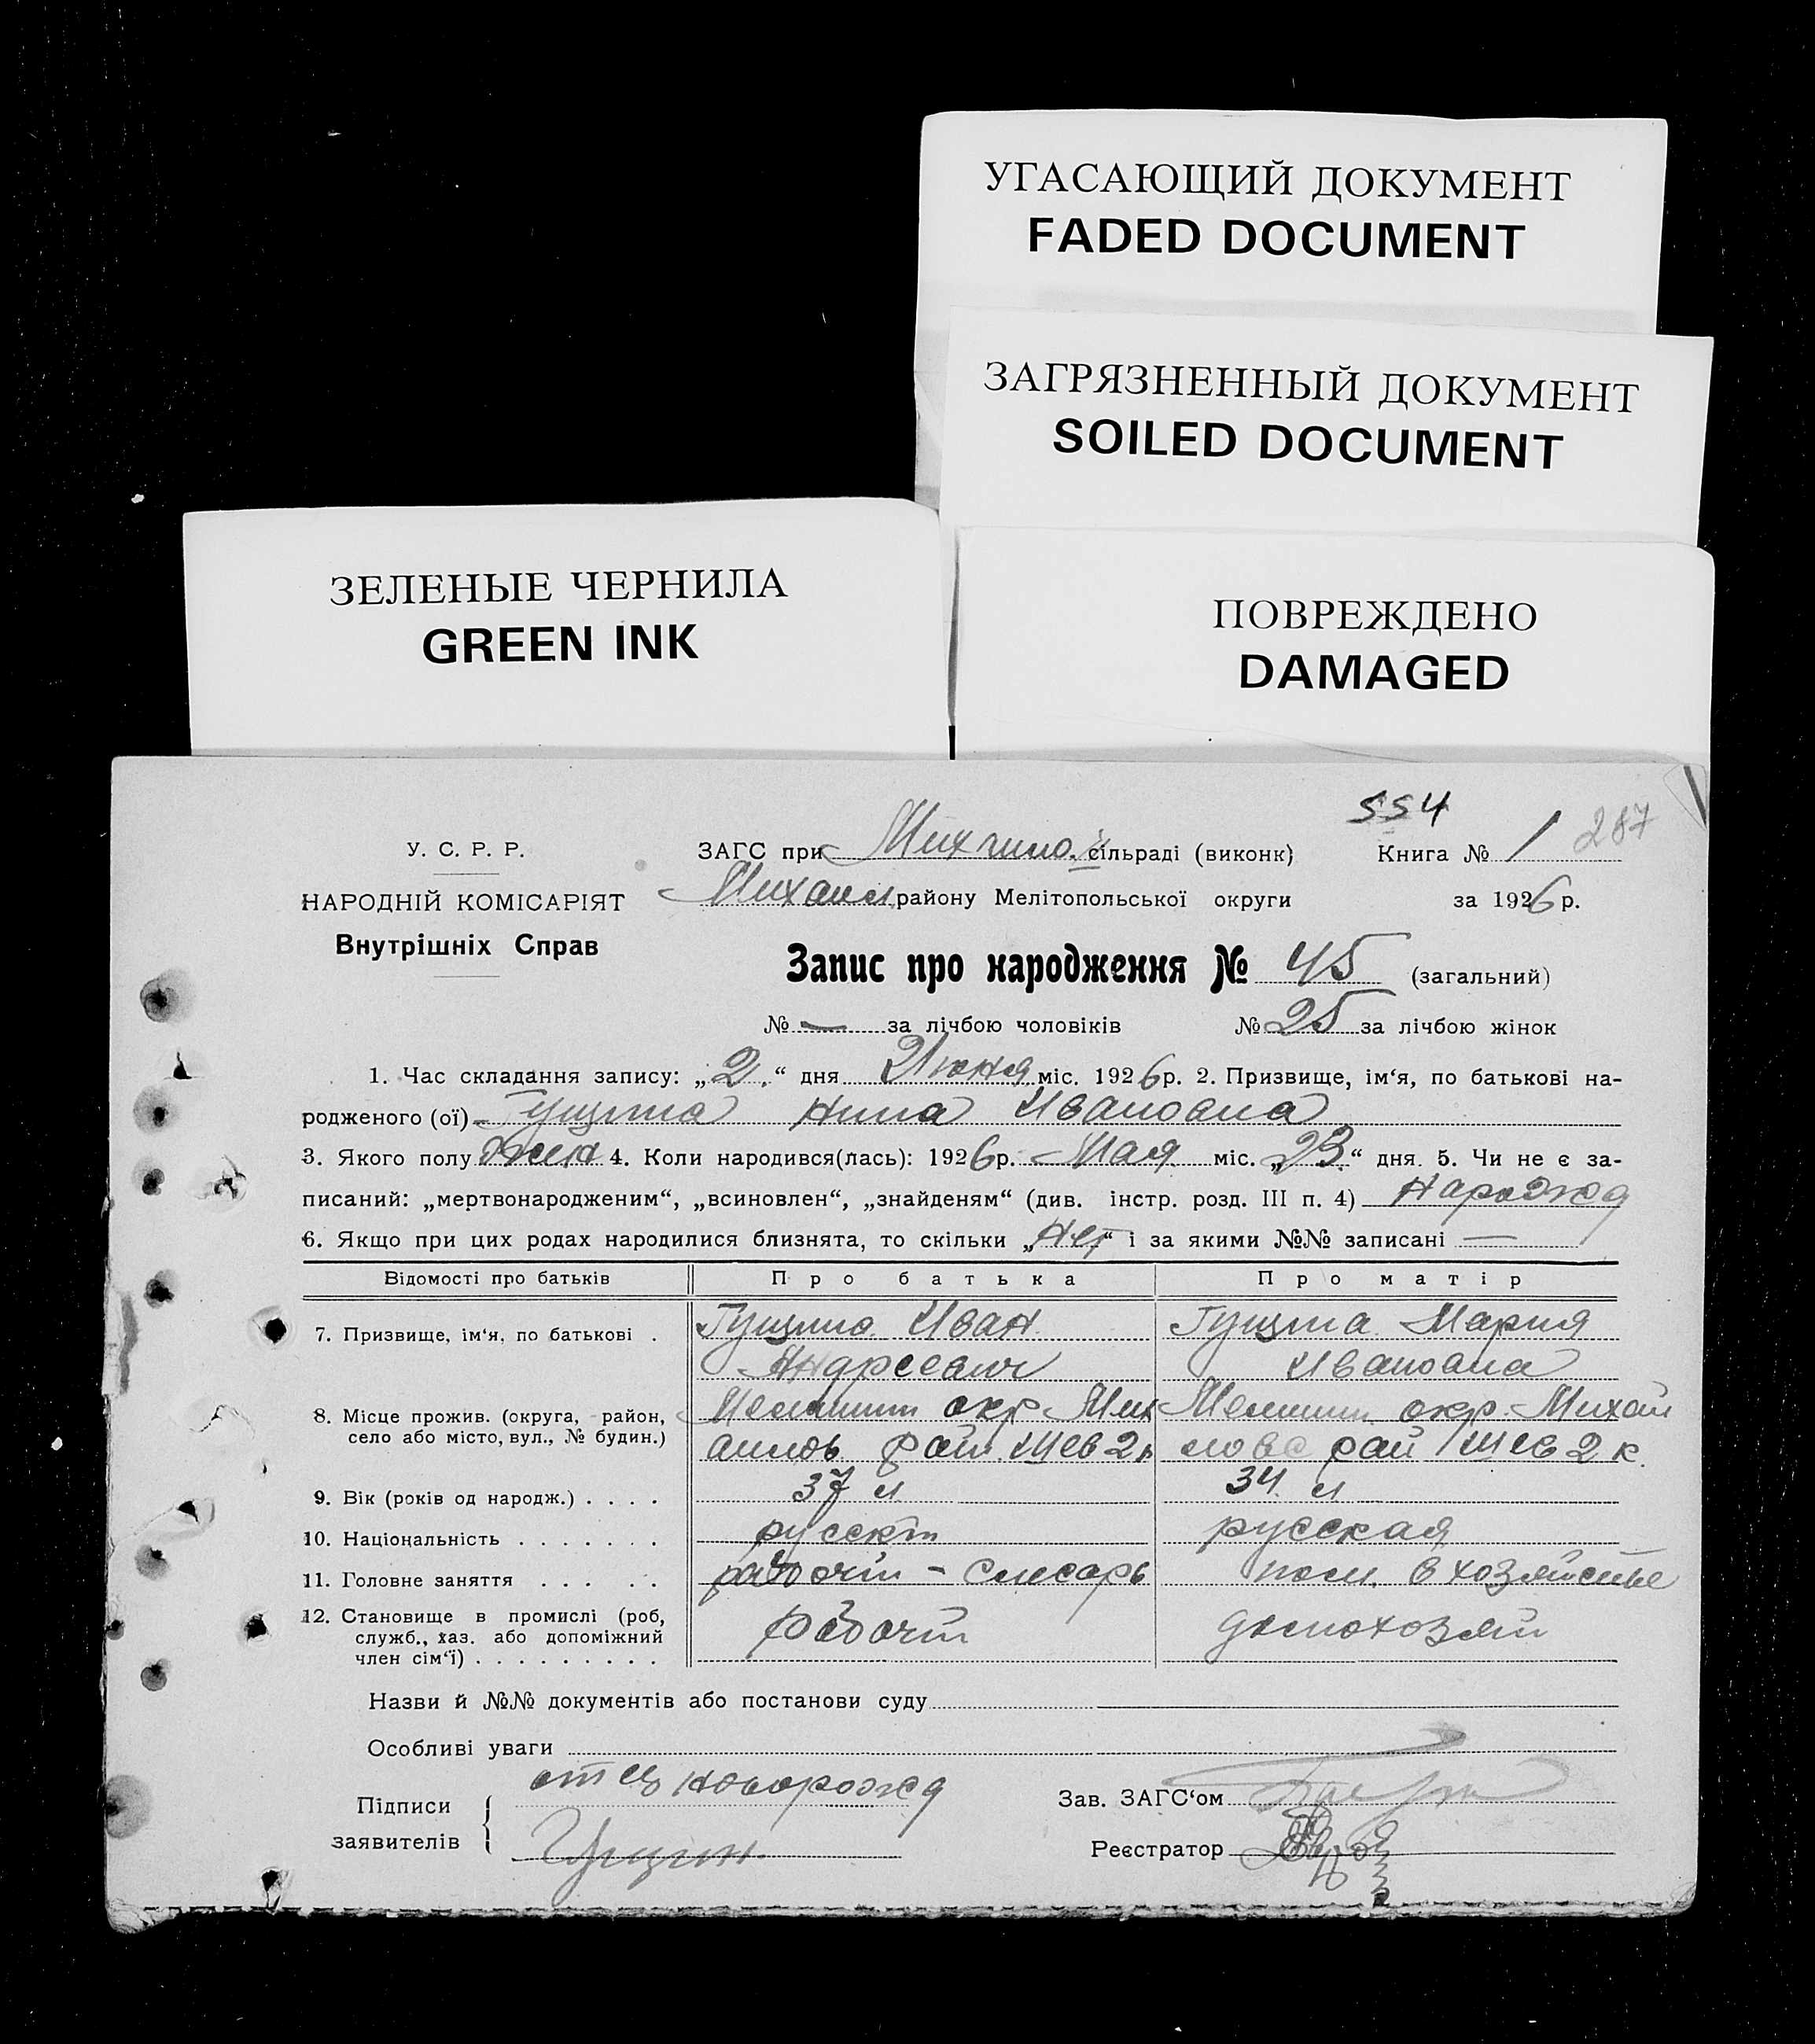 УГАСАЮЩИЙ ДОКУМЕНТ
FADED DOCUMENT
ЗАГРЯЗНЕННЫЙ ДОКУМЕНТ
SOILED DOCUMENT
ЗЕЛЕНЫЕ ЧЕРНИЛА
GREEN INK
ПОВРЕЖДЕНО
DAMAGED
554
287
У. С. Р. Р.
НАРОДНІЙ КОМІСАРІЯТ
Внутрішніх Справ
ЗАГС при сільраді (виконк) Книга № 1
Михайл. району Мелітопольської округи за 1926 р.
Запис про народження № 45 (загальний)
№ — за лічбою чоловіків № 25 за лічбою жінок
1. Час складання запису: „2.“ дня Июня міс. 1926 р. 2. Призвище, ім‘я, по батькові на-
родженого (ої) Гущина Нина Ивановна
3. Якого полу жен 4. Коли народився(лась): 1926 р. Мая міс. „23“ дня. 5. Чи не є за-
писаний: „мертвонародженим“, „всиновлен“, „знайденям“ (див. інстр. розд. III п. 4) Нарожд
6. Якщо при цих родах народилися близнята, то скільки „Нет“ і за якими №№ записані —
Відомості про батьків Про батька Про матір
7. Призвище, ім‘я, по батькові . Гущин. Иван Гущина Мария
Андреевич Ивановна
8. Місце прожив. (округа, район, окр. Мих окр. Михай
село або місто, вул., № будин.) аилов. рай. Шев 2 к ловс рай Шев 2 к.
9. Вік (років од народж.) . . . . 37 л 34 л
10. Національність . . . . . . . русский русская
11. Головне заняття . . . . . рабочий - слесарь пом. в хозяйстве
12. Становище в промислі (роб,
служб., хаз. або допоміжний рабочий домохозяй
член сім‘ї) . . . . . . . . .
Назви й №№ документів або постанови суду
Особливі уваги
отец новорожд
Підписи
заявителів Гущин.
Зав. ЗАГС‘ом
Реєстратор